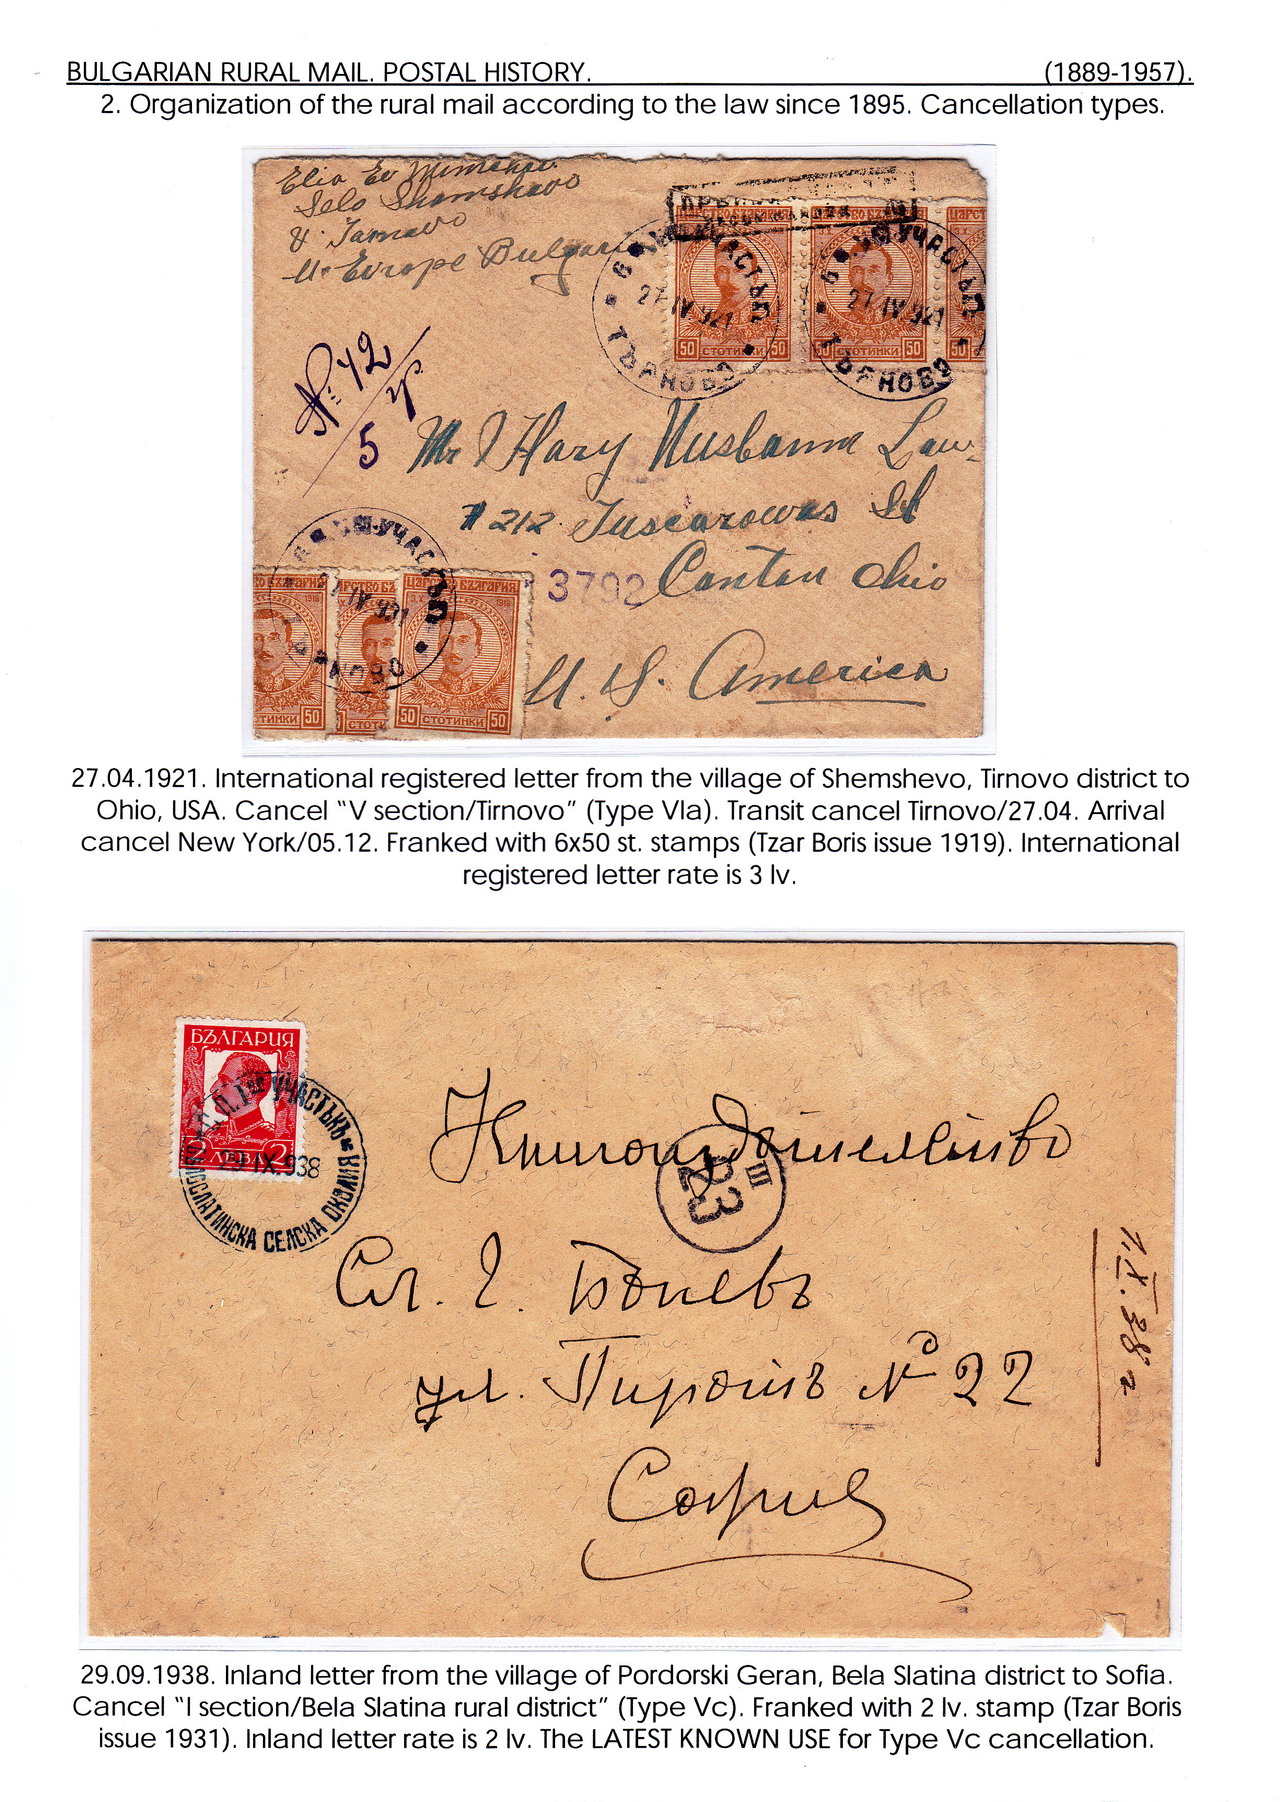 BULGARIAN RURAL MAIL. POSTAL HISTORY. (1889-1957).
2. Organization of the rural mail according to the law since 1895. Cancellation types.
Elia Ev
Selo Shamshavo
V. Tarnavo
Evrope Bulgaria
№ 42
5
УЧАСТЪК
27 IV 921
ТЪРНОВО
УЧАСТЪК
27 IV 921
ТЪРНОВО
50 СТОТИНКИ 50
50 СТОТИНКИ 50
50
Mr Hary Nusbaum Law.
# 212 Tuscarowas St
3792 Canton Ohio
U. S. America
УЧАСТЪК
IV 921
ЦАРСТВО БЪЛГАРИЯ
1919
50 СТОТИНКИ 50
27.04.1921. International registered letter from the village of Shemshevo, Tirnovo district to
Ohio, USA. Cancel "V section/Tirnovo" (Type VIa). Transit cancel Tirnovo/27.04. Arrival
cancel New York/05.12. Franked with 6x50 st. stamps (Tzar Boris issue 1919). International
registered letter rate is 3 lv.
БЪЛГАРИЯ
2 ЛЕВА 2
С.П. Iй УЧАСТЪКЪ
29 IX 938
БѢЛОСЛАТИНСКА СЕЛСКА ОКОЛИЯ
Книгоиздателство
Ш
23
Сл. Г.
ул. Пиротъ № 22
София
1.X.38 г
29.09.1938. Inland letter from the village of Pordorski Geran, Bela Slatina district to Sofia.
Cancel "I section/Bela Slatina rural district" (Type Vc). Franked with 2 lv. stamp (Tzar Boris
issue 1931). Inland letter rate is 2 lv. The LATEST KNOWN USE for Type Vc cancellation.